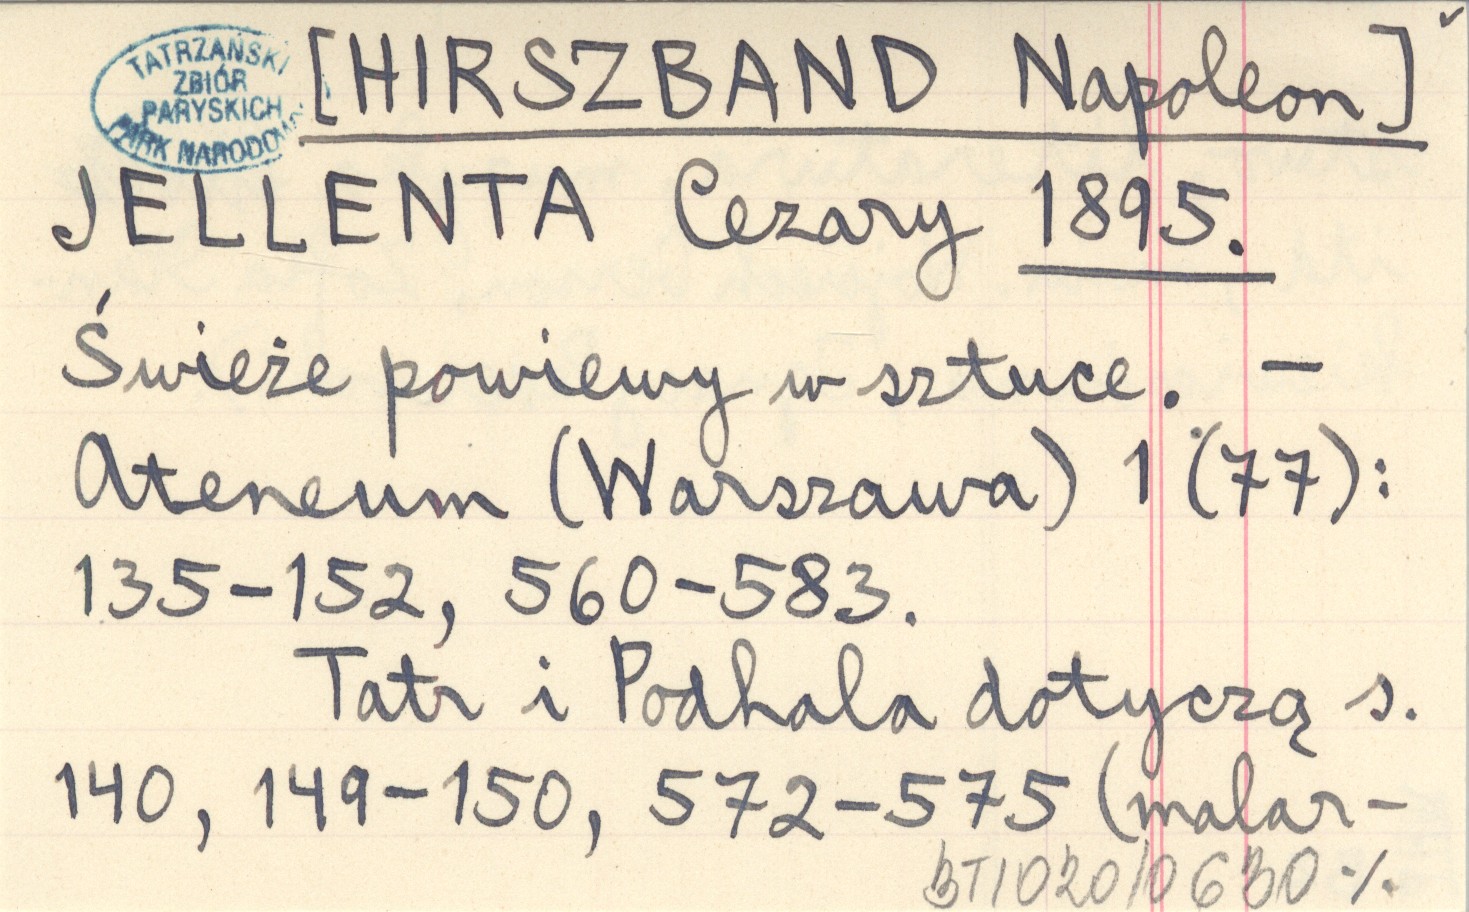 TATRZAŃSKI
ZBIÓR
PARYSKICH
PARK NARODOWY
[HIRSZBAND Napoleon]
JELLENTA Cezary 1895.
Świeże powiewy w sztuce. –
Ateneum (Warszawa) 1 (77):
135–152, 560–583.
Tatr i Podhala dotyczą s.
140, 149–150, 572–575 (malar-
BT1020/0630 ./.